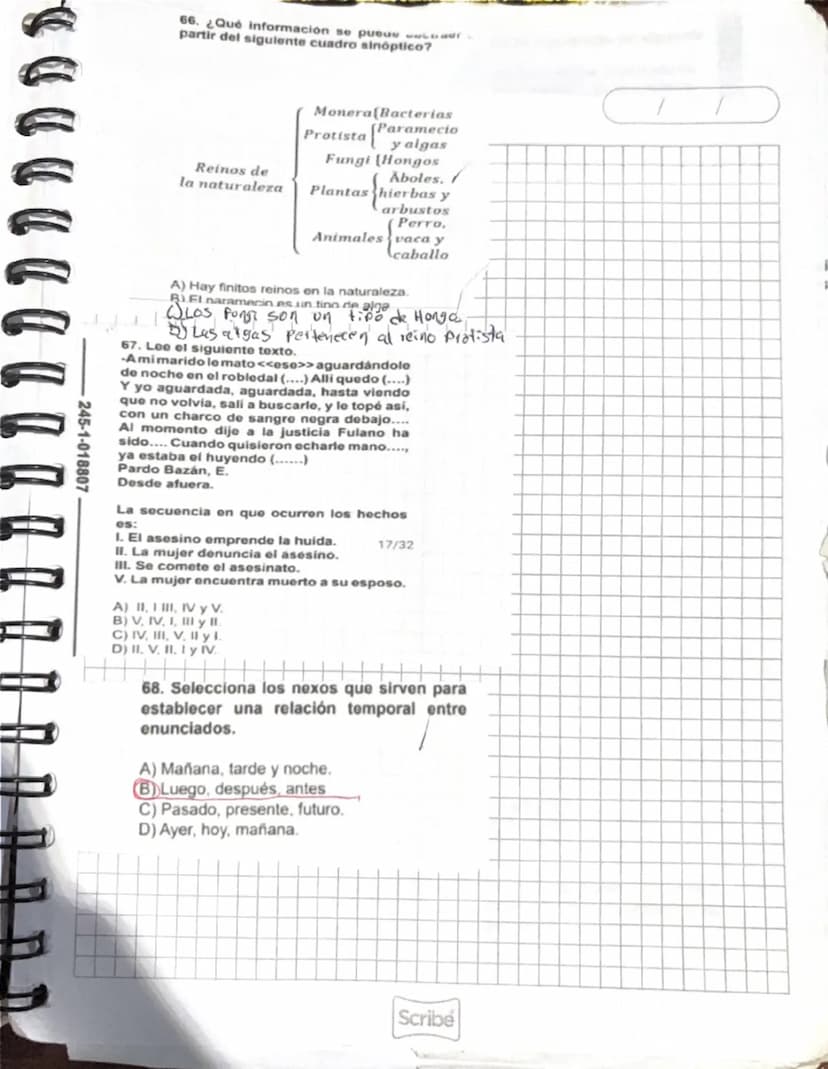 66. ¿Qué información se puede
partir del siguiente cuadro sinóptico?
/ /
Monera{Bacterias
Protista {Paramecio
y algas
Fungi {Hongos
Reinos de
la naturaleza
Plantas {Áboles,
hierbas y
arbustos
Animales {Perro,
vaca y
caballo
A) Hay finitos reinos en la naturaleza.
B) El paramecio es un tipo de alga
C) Los Fongi son un tipo de Hongo
D) Las algas Pertenecen al reino Protista
67. Lee el siguiente texto.
-A mi marido le mato <<ese>> aguardándole
de noche en el robledal (....) Allí quedo (....)
Y yo aguardada, aguardada, hasta viendo
que no volvía, salí a buscarle, y le topé así,
con un charco de sangre negra debajo....
Al momento dije a la justicia Fulano ha
sido.... Cuando quisieron echarle mano....,
ya estaba el huyendo (......)
Pardo Bazán, E.
Desde afuera.
245-1-018807
La secuencia en que ocurren los hechos
es:
I. El asesino emprende la huida.
17/32
II. La mujer denuncia el asesino.
III. Se comete el asesinato.
V. La mujer encuentra muerto a su esposo.
A) II, I III, IV y V.
B) V, IV, I, III y II.
C) IV, III, V, II y I.
D) II, V, II, I y IV.
68. Selecciona los nexos que sirven para
establecer una relación temporal entre
enunciados.
A) Mañana, tarde y noche.
B) Luego, después, antes
C) Pasado, presente, futuro.
D) Ayer, hoy, mañana.
Scribe